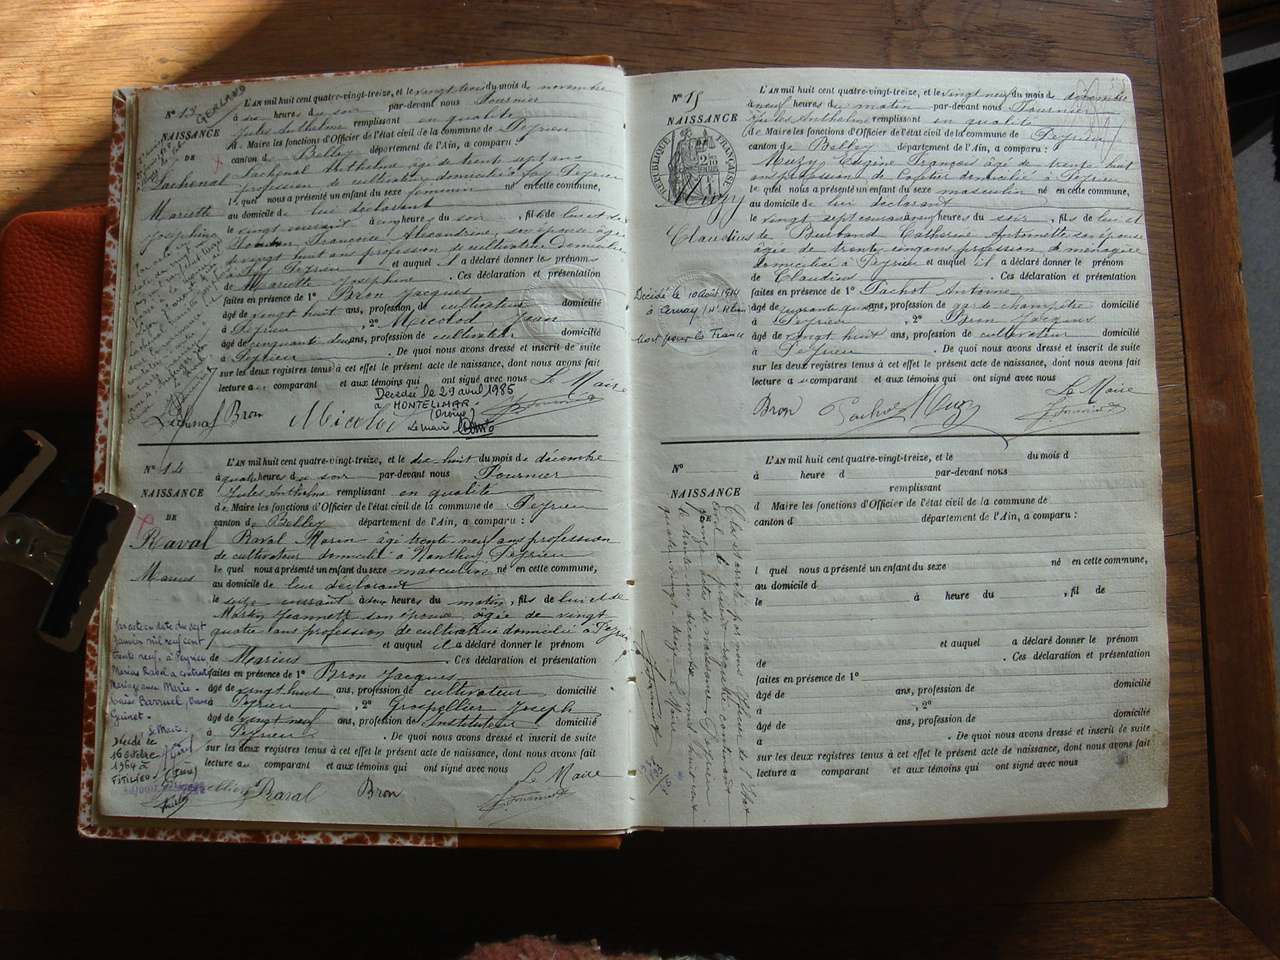 N° 13 GERLAND
NAISSANCE
DE
Lachenal
Mariette
Joséphine
L'AN mil huit cent quatre-vingt-treize, et le vingt trois du mois de novembre
à six heures du soir par-devant nous Fournier
Jules Anthelme remplissant en qualité
de Maire les fonctions d'Officier de l'état civil de la commune de Peyrieu
canton de Belley département de l'Ain, a comparu :
Lachenal Anthelme âgé de trente sept ans
profession de cultivateur domicilié à Fay Peyrieu
lequel nous a présenté un enfant du sexe féminin né en cette commune,
au domicile de lui déclarant
le vingt courant à cinq heures du soir, fille de lui et de
Françoise Alexandrine, son épouse âgée
de vingt huit ans profession de cultivatrice Domiciliée
à Fay Peyrieu et auquel il a déclaré donner le prénoms
de Mariette Joséphine . Ces déclaration et présentation
faites en présence de 1° Bron Jacques
âgé de vingt huit ans, profession de cultivateur domicilié
à Peyrieu , 2° Micolod Jean
âgé de cinquante deux ans, profession de cultivateur domicilié
à Peyrieu . De quoi nous avons dressé et inscrit de suite
sur les deux registres tenus à cet effet le présent acte de naissance, dont nous avons fait
lecture au comparant et aux témoins qui ont signé avec nous Le Maire
Décédée le 29 avril 1985
à MONTELIMAR
(Drôme)
Le maire
Lachenal Bron Micolod Fournier
N° 14
NAISSANCE
DE
Raval
Marius
L'AN mil huit cent quatre-vingt-treize, et le dix huit du mois de décembre
à quatre heures du soir par-devant nous Fournier
Jules Anthelme remplissant en qualité
de Maire les fonctions d'Officier de l'état civil de la commune de Peyrieu
canton de Belley département de l'Ain, a comparu :
Raval Marin âgé trente neuf ans profession
de cultivateur domicilié à Nanthuy Peyrieu
lequel nous a présenté un enfant du sexe masculin né en cette commune,
au domicile de lui déclarant
le seize courant à deux heures du matin, fils de lui et de
Martin Jeannette son épouse âgée de vingt
quatre ans profession de cultivatrice domiciliée à Peyrieu
et auquel il a déclaré donner le prénom
de Marius . Ces déclaration et présentation
faites en présence de 1° Bron Jacques
âgé de vingt huit ans, profession de cultivateur domicilié
à Peyrieu , 2° Grospellier Joseph
âgé de vingt neuf ans, profession de Instituteur domicilié
à Peyrieu . De quoi nous avons dressé et inscrit de suite
sur les deux registres tenus à cet effet le présent acte de naissance, dont nous avons fait
lecture au comparant et aux témoins qui ont signé avec nous
Le Maire
Grospellier Raval Bron Fournier
Par acte en date du sept
janvier mil neuf cent
trente neuf, à Peyrieu
Marius Raval a contracté
Mariage avec Marie
Guinet.
le Maire:
Décédé le
16 octobre
1964 à
FITILIEU (Isère)
N° 15
NAISSANCE
RÉPUBLIQUE FRANÇAISE
Muzy
Claudius
L'AN mil huit cent quatre-vingt-treize, et le vingt neuf du mois de décembre
à neuf heures du matin par-devant nous Fournier
Jules Anthelme remplissant en qualité
de Maire les fonctions d'Officier de l'état civil de la commune de Peyrieu
canton de Belley département de l'Ain, a comparu :
Muzy Eugène François âgé de trente huit
ans profession de Cafetier domicilié à Peyrieu
lequel nous a présenté un enfant du sexe masculin né en cette commune,
au domicile de lui déclarant
le vingt sept courant à onze heures du soir, fils de lui et
de Burtand Catherine Antoinette son épouse
âgée de trente cinq ans profession de ménagère
domiciliée à Peyrieu et auquel il a déclaré donner le prénom
de Claudius . Ces déclaration et présentation
faites en présence de 1° Pachot Antoine
âgé de quarante quatre ans, profession de garde champêtre domicilié
à Peyrieu , 2° Bron Jacques
âgé de vingt huit ans, profession de cultivateur domicilié
à Peyrieu . De quoi nous avons dressé et inscrit de suite
sur les deux registres tenus à cet effet le présent acte de naissance, dont nous avons fait
lecture au comparant et aux témoins qui ont signé avec nous
Le Maire
Bron Pachot Muzy Fournier
Décédé le 10 Août 1914
à Cernay (Ht Rhin)
Mort pour la France
N°
NAISSANCE
DE
L'AN mil huit cent quatre-vingt-treize, et le du mois d
à heure d par-devant nous
remplissant
d Maire les fonctions d'Officier de l'état civil de la commune de
canton d département de l'Ain, a comparu :
l quel nous a présenté un enfant du sexe né en cette commune,
au domicile d
le à heure du , fil de
et auquel a déclaré donner le prénom
de . Ces déclaration et présentation
faites en présence de 1°
âgé de ans, profession de domicilié
à , 2°
âgé de ans, profession de domicilié
à . De quoi nous avons dressé et inscrit de suite
sur les deux registres tenus à cet effet le présent acte de naissance, dont nous avons fait
lecture au comparant et aux témoins qui ont signé avec nous
Clos et arrêté par nous Officier de l'Etat
civil le présent registre contenant
quinze actes de naissance. Peyrieu
le trente un décembre mil huit cent
quatre vingt treize. L'Officier
Fournier